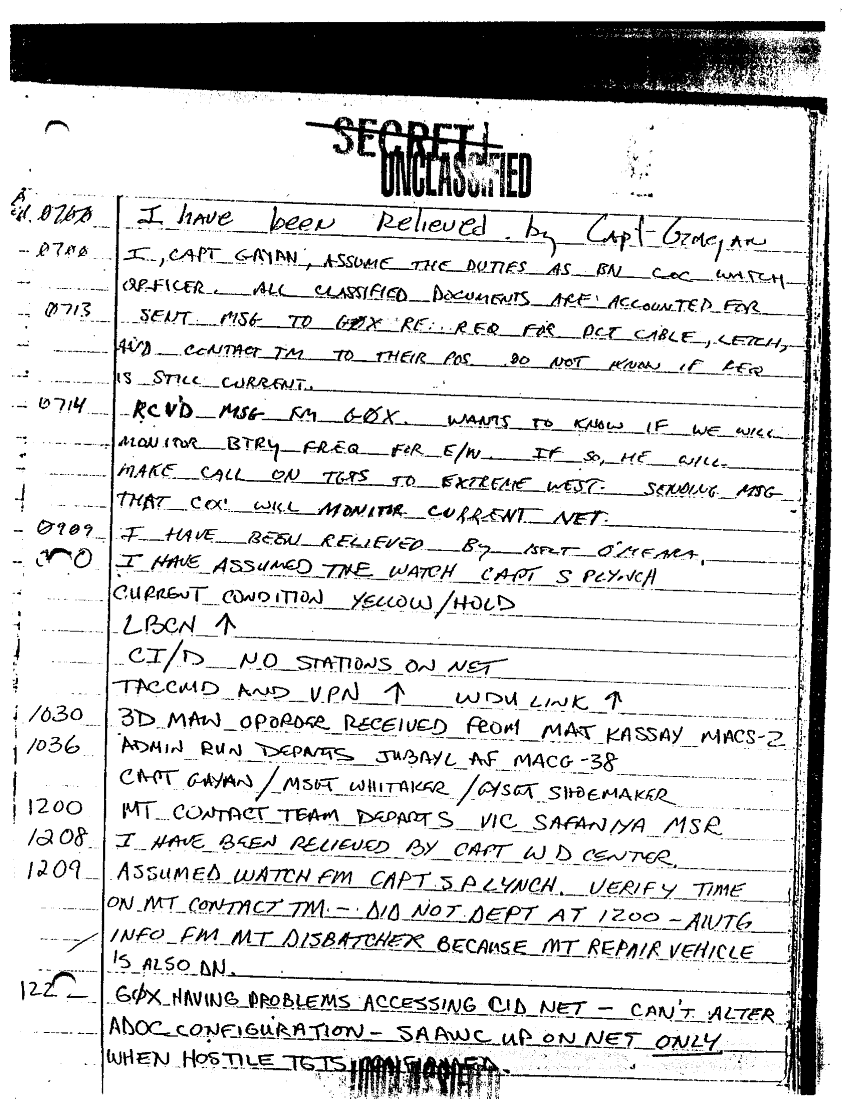 SECRET
UNCLASSIFIED
0700 I have been Relieved by Capt
0700 I, CAPT GAYAN, ASSUME THE DUTIES AS BN COC WATCH
OFFICER. ALL CLASSIFIED DOCUMENTS ARE ACCOUNTED FOR
0713 SENT MSG TO GØX RE: REQ FOR DCT CABLE, LETCH,
AND CONTACT TM TO THEIR POS DO NOT KNOW IF REQ
IS STILL CURRENT.
0714 RCVD MSG FM GØX. WANTS TO KNOW IF WE WILL
MONITOR BTRY FREQ FOR E/W. IF SO, HE WILL
MAKE CALL ON TGTS TO EXTREME WEST. SENDING MSG
THAT COC WILL MONITOR CURRENT NET.
0909 I HAVE BEEN RELIEVED By O'MEARA.
I HAVE ASSUMED THE WATCH CAPT S P LYNCH
CURRENT CONDITION YELLOW/HOLD
LBCN ↑
CI/D NO STATIONS ON NET
TACCMD AND VPN ↑ WDU LINK ↑
1030 3D MAW OPORDER RECEIVED FROM MAT KASSAY MACS-2
1036 ADMIN RUN DEPARTS JUBAYL AF MACG-38
CAPT GAYAN/MSGT WHITAKER/GYSGT SHOEMAKER
1200 MT CONTACT TEAM DEPARTS VIC SAFANIYA MSR
1208 I HAVE BEEN RELIEVED BY CAPT W D CENTER.
1209 ASSUMED WATCH FM CAPT S P LYNCH. VERIFY TIME
ON MT CONTACT TM. - DID NOT DEPT AT 1200 - AWTG
INFO FM MT DISBATCHER BECAUSE MT REPAIR VEHICLE
IS ALSO DN.
GØX HAVING PROBLEMS ACCESSING CID NET - CAN'T ALTER
ADOC CONFIGURATION - SAAWC UP ON NET ONLY
WHEN HOSTILE TGTS CONFIRMED.